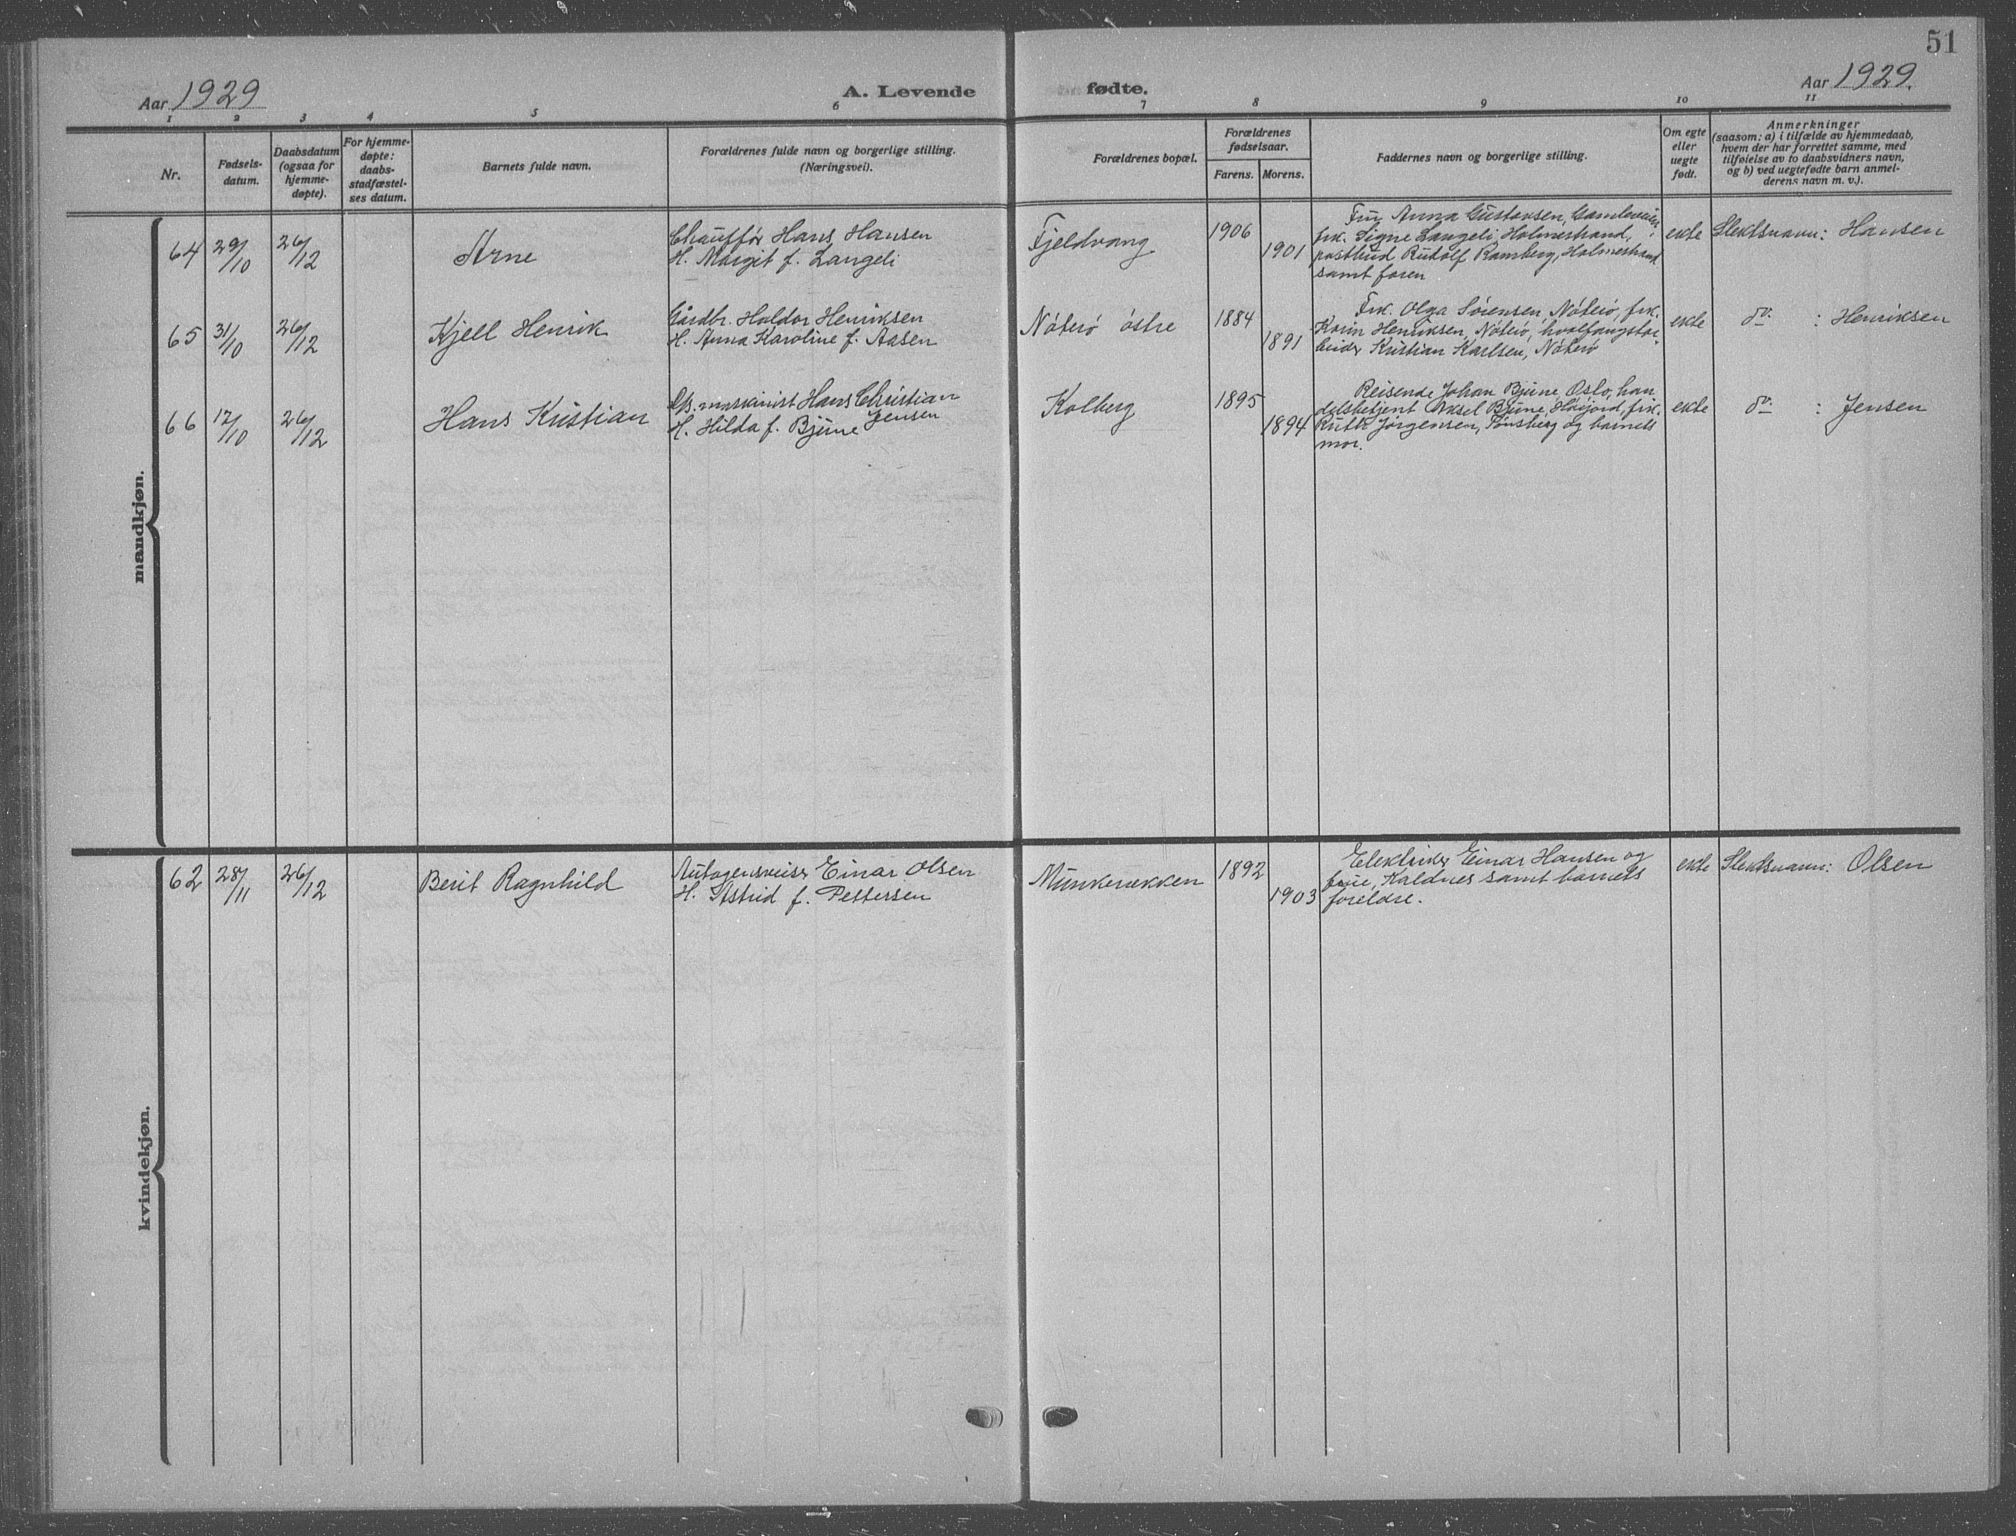 51
Aar 1929
A. Levende fødte.
Aar 1929.
1 2 3 4 5 6 7 8 9 10 11
Nr.
Fødsels-
datum.
Daabsdatum
(ogsaa for
hjemme-
døpte).
For hjemme-
døpte:
daabs-
stadfæstel-
ses datum.
Barnets fulde navn.
Forældrenes fulde navn og borgerlige stilling.
(Næringsvei).
Forældrenes bopæl.
Forældrenes
fødselsaar.
Farens. Morens.
Faddernes navn og borgerlige stilling.
Om egte
eller
uegte
født.
Anmerkninger
(saasom: a) i tilfælde av hjemmedaab,
hvem der har forrettet samme, med
tilføielse av to daabsvidners navn,
og b) ved uegtefødte barn anmel-
derens navn m. v.).
mandkjøn.
64 29/10 26/12 Arne
Chauffør Hans Hansen
H. Margit f. Langeli
Fjeldvang 1906 1901
Fru Anna Gustavsen,
frk. Signe Langeli Holmestrand,
postbud Rudolf Ramberg, Holmestrand
samt faren
ekte Slektsnavn: Hansen
65 31/10 26/12 Kjell Henrik
Gårdbr. Haldor Henriksen
H. Anna Karoline f. Aasen
Nøterø østre 1884 1891
Frk. Olga Sørensen, Nøterø, frk.
Karin Henriksen, Nøterø, hvalfangstar-
beider Kristian Karlsen, Nøterø
ekte do : Henriksen
66 17/10 26/12 Hans Kristian
Ass. maskinist Hans Christian
Jensen
H. Hilda f. Bjune
Kolberg 1895 1894
Reisende Johan Bjune, Oslo, han
delsbetjent Aksel Bjune, Høijord, frk.
Ruth Jørgensen, Tønsberg og barnets
mor.
ekte do : Jensen
kvindekjøn.
62 28/11 26/12 Berit Ragnhild
Autogensveiser Einar Olsen
H. Astrid f. Pettersen
Munkerekken 1892 1903
Elektriker Einar Hansen og
frue, Kaldnes samt barnets
foreldre.
ekte Slektsnavn: Olsen